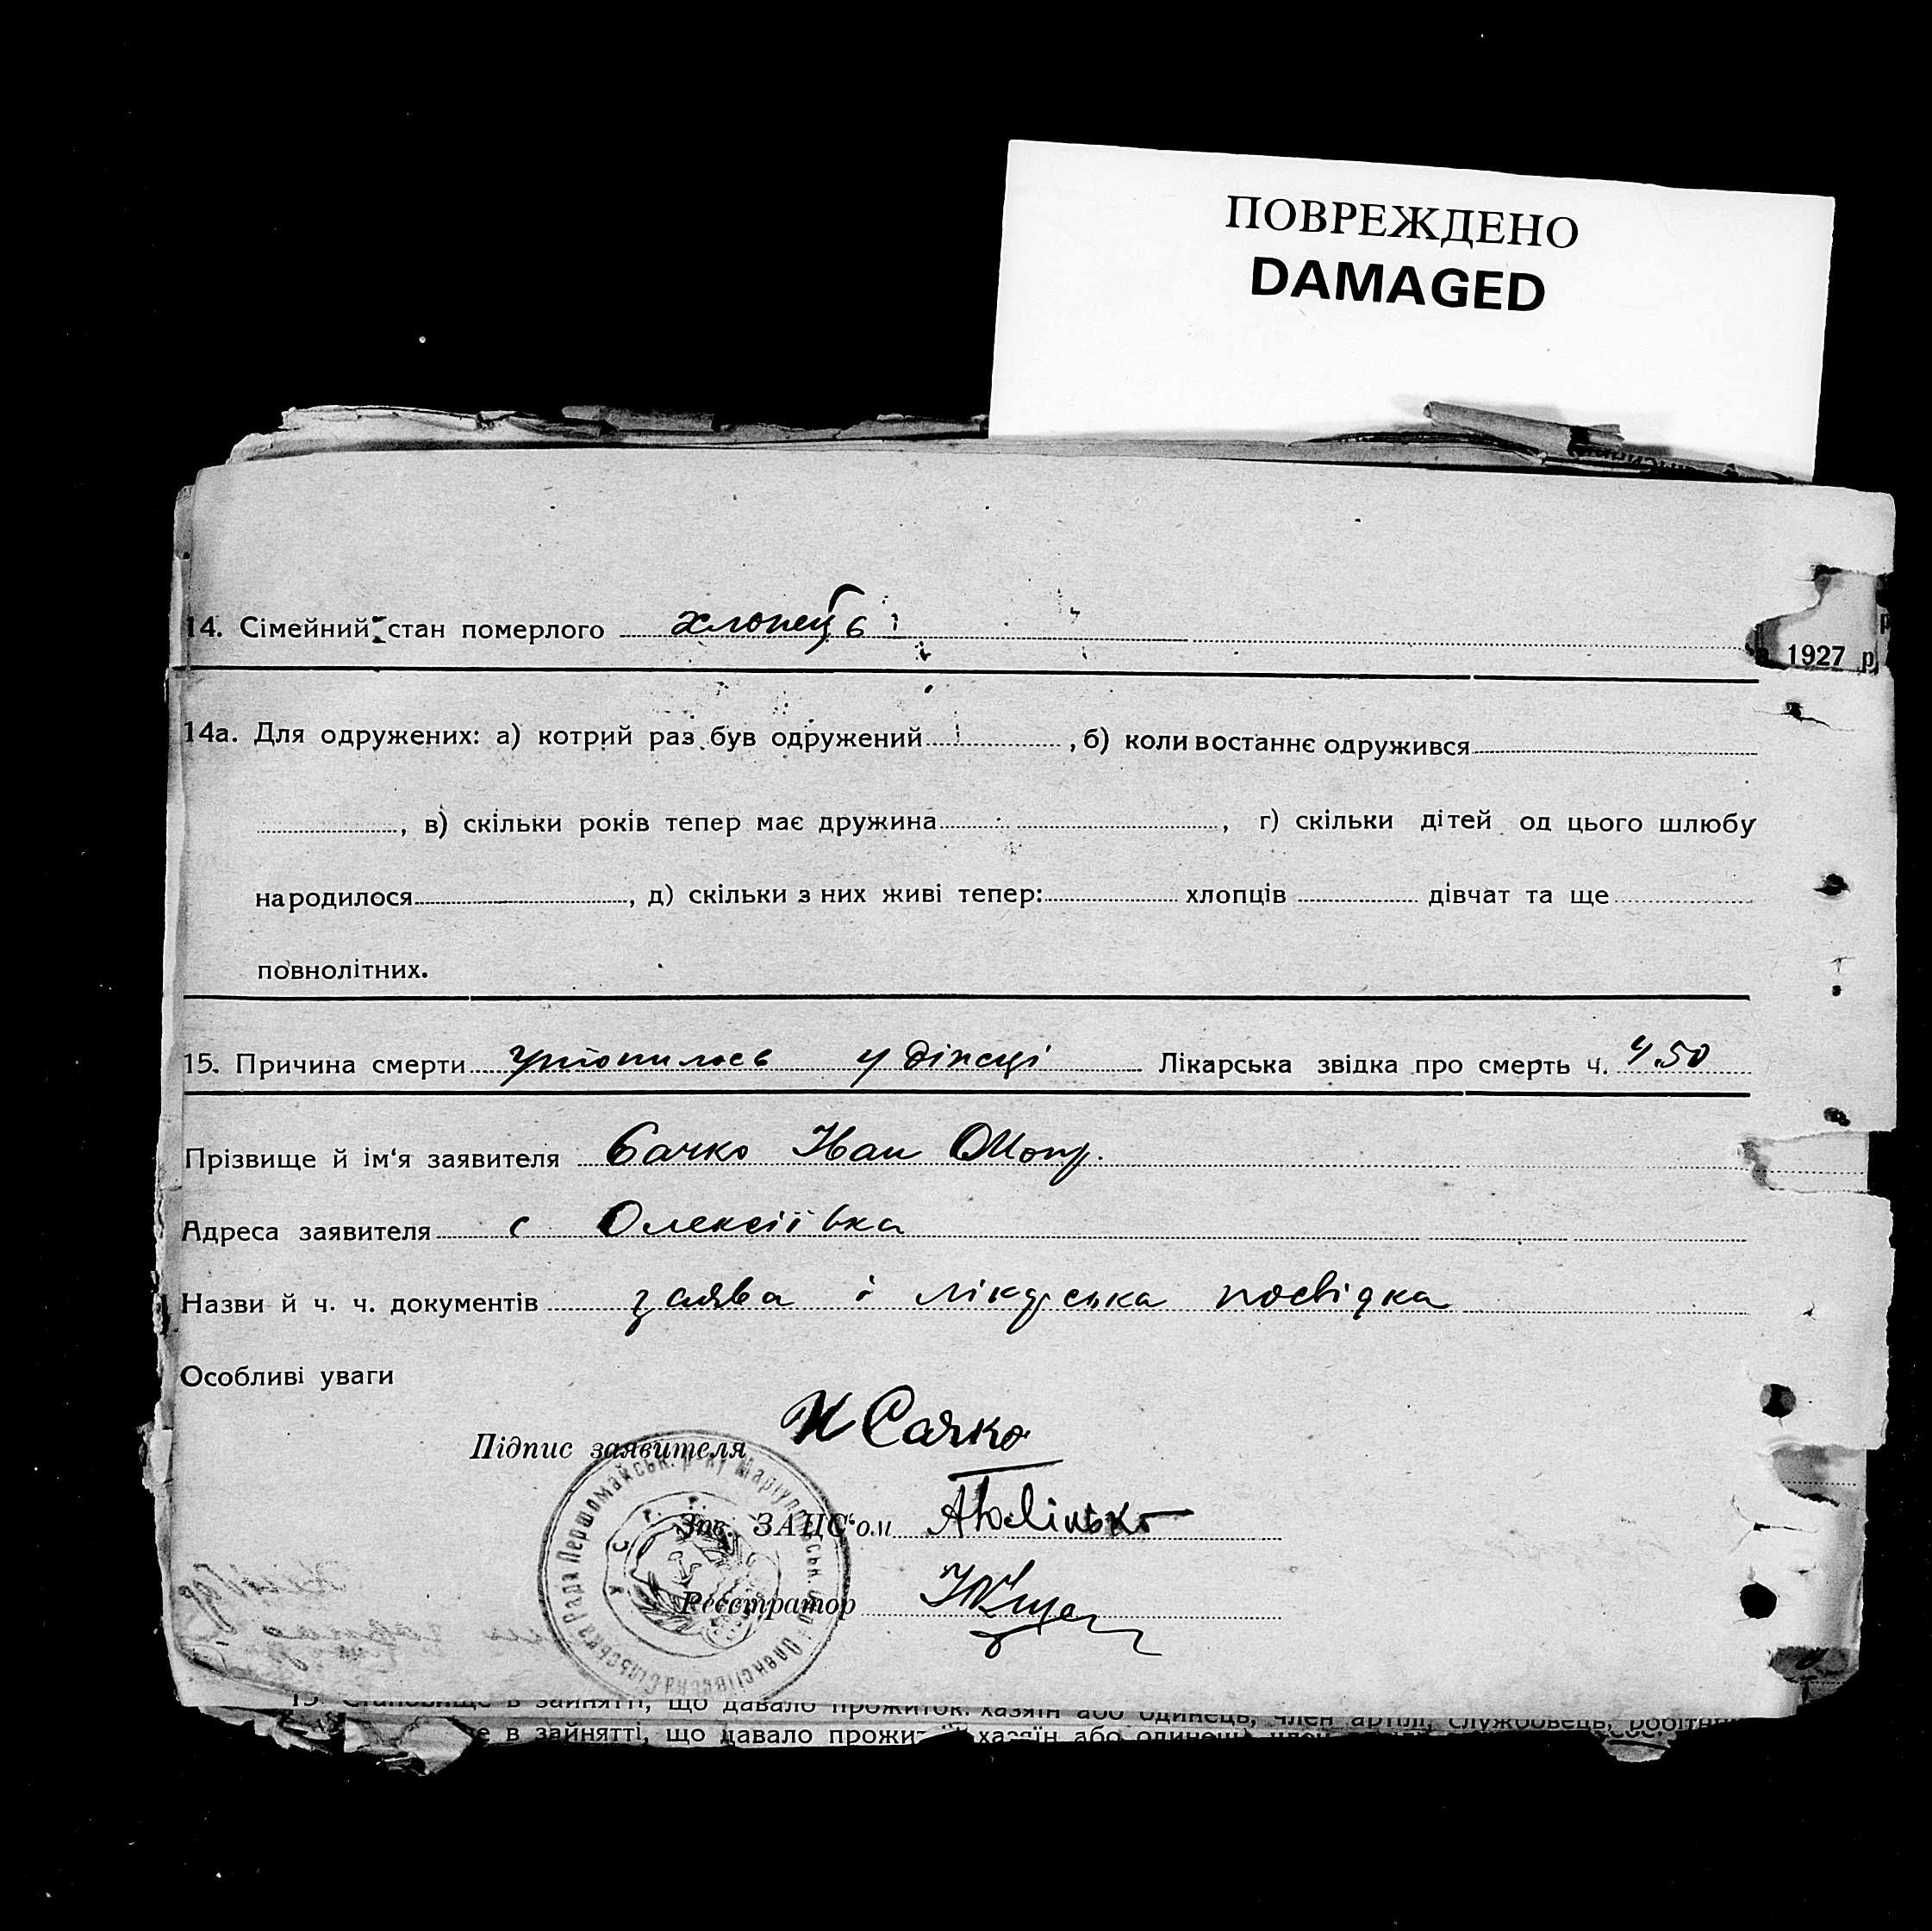 ПОВРЕЖДЕНО
DAMAGED
14. Сімейний стан померлого хлопець
1927 р
14а. Для одружених: а) котрий раз був одружений , б) коли востаннє одружився
, в) скільки років тепер має дружина , г) скільки дітей од цього шлюбу
народилося , д) скільки з них живі тепер: хлопців дівчат та ще
повнолітних.
15. Причина смерти утопилось у діжці Лікарська звідка про смерть ч. 450
Прізвище й ім'я заявителя Сачко Иван
Адреса заявителя с Олексіївка
Назви й ч. ч. документів заява і лікарська посвідка
Особливі уваги
Підпис заявителя И Сачко
Зав. ЗАЦС'ом
Реєстратор
Олексіївська Сільська Рада Першомайськ. р-ну Маріупольськ.
У С Р Р
в зайнятті, що давало прожиток: хазяїн або одинець, член артілі, службовець, робітн
е в зайнятті, що давало прожи хазяїн або одинець